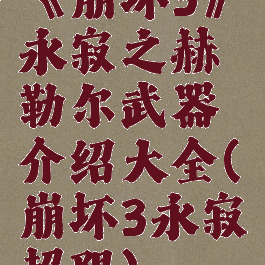 《崩坏3》
永寂之赫
勒尔武器
介绍大全(
崩坏3永寂